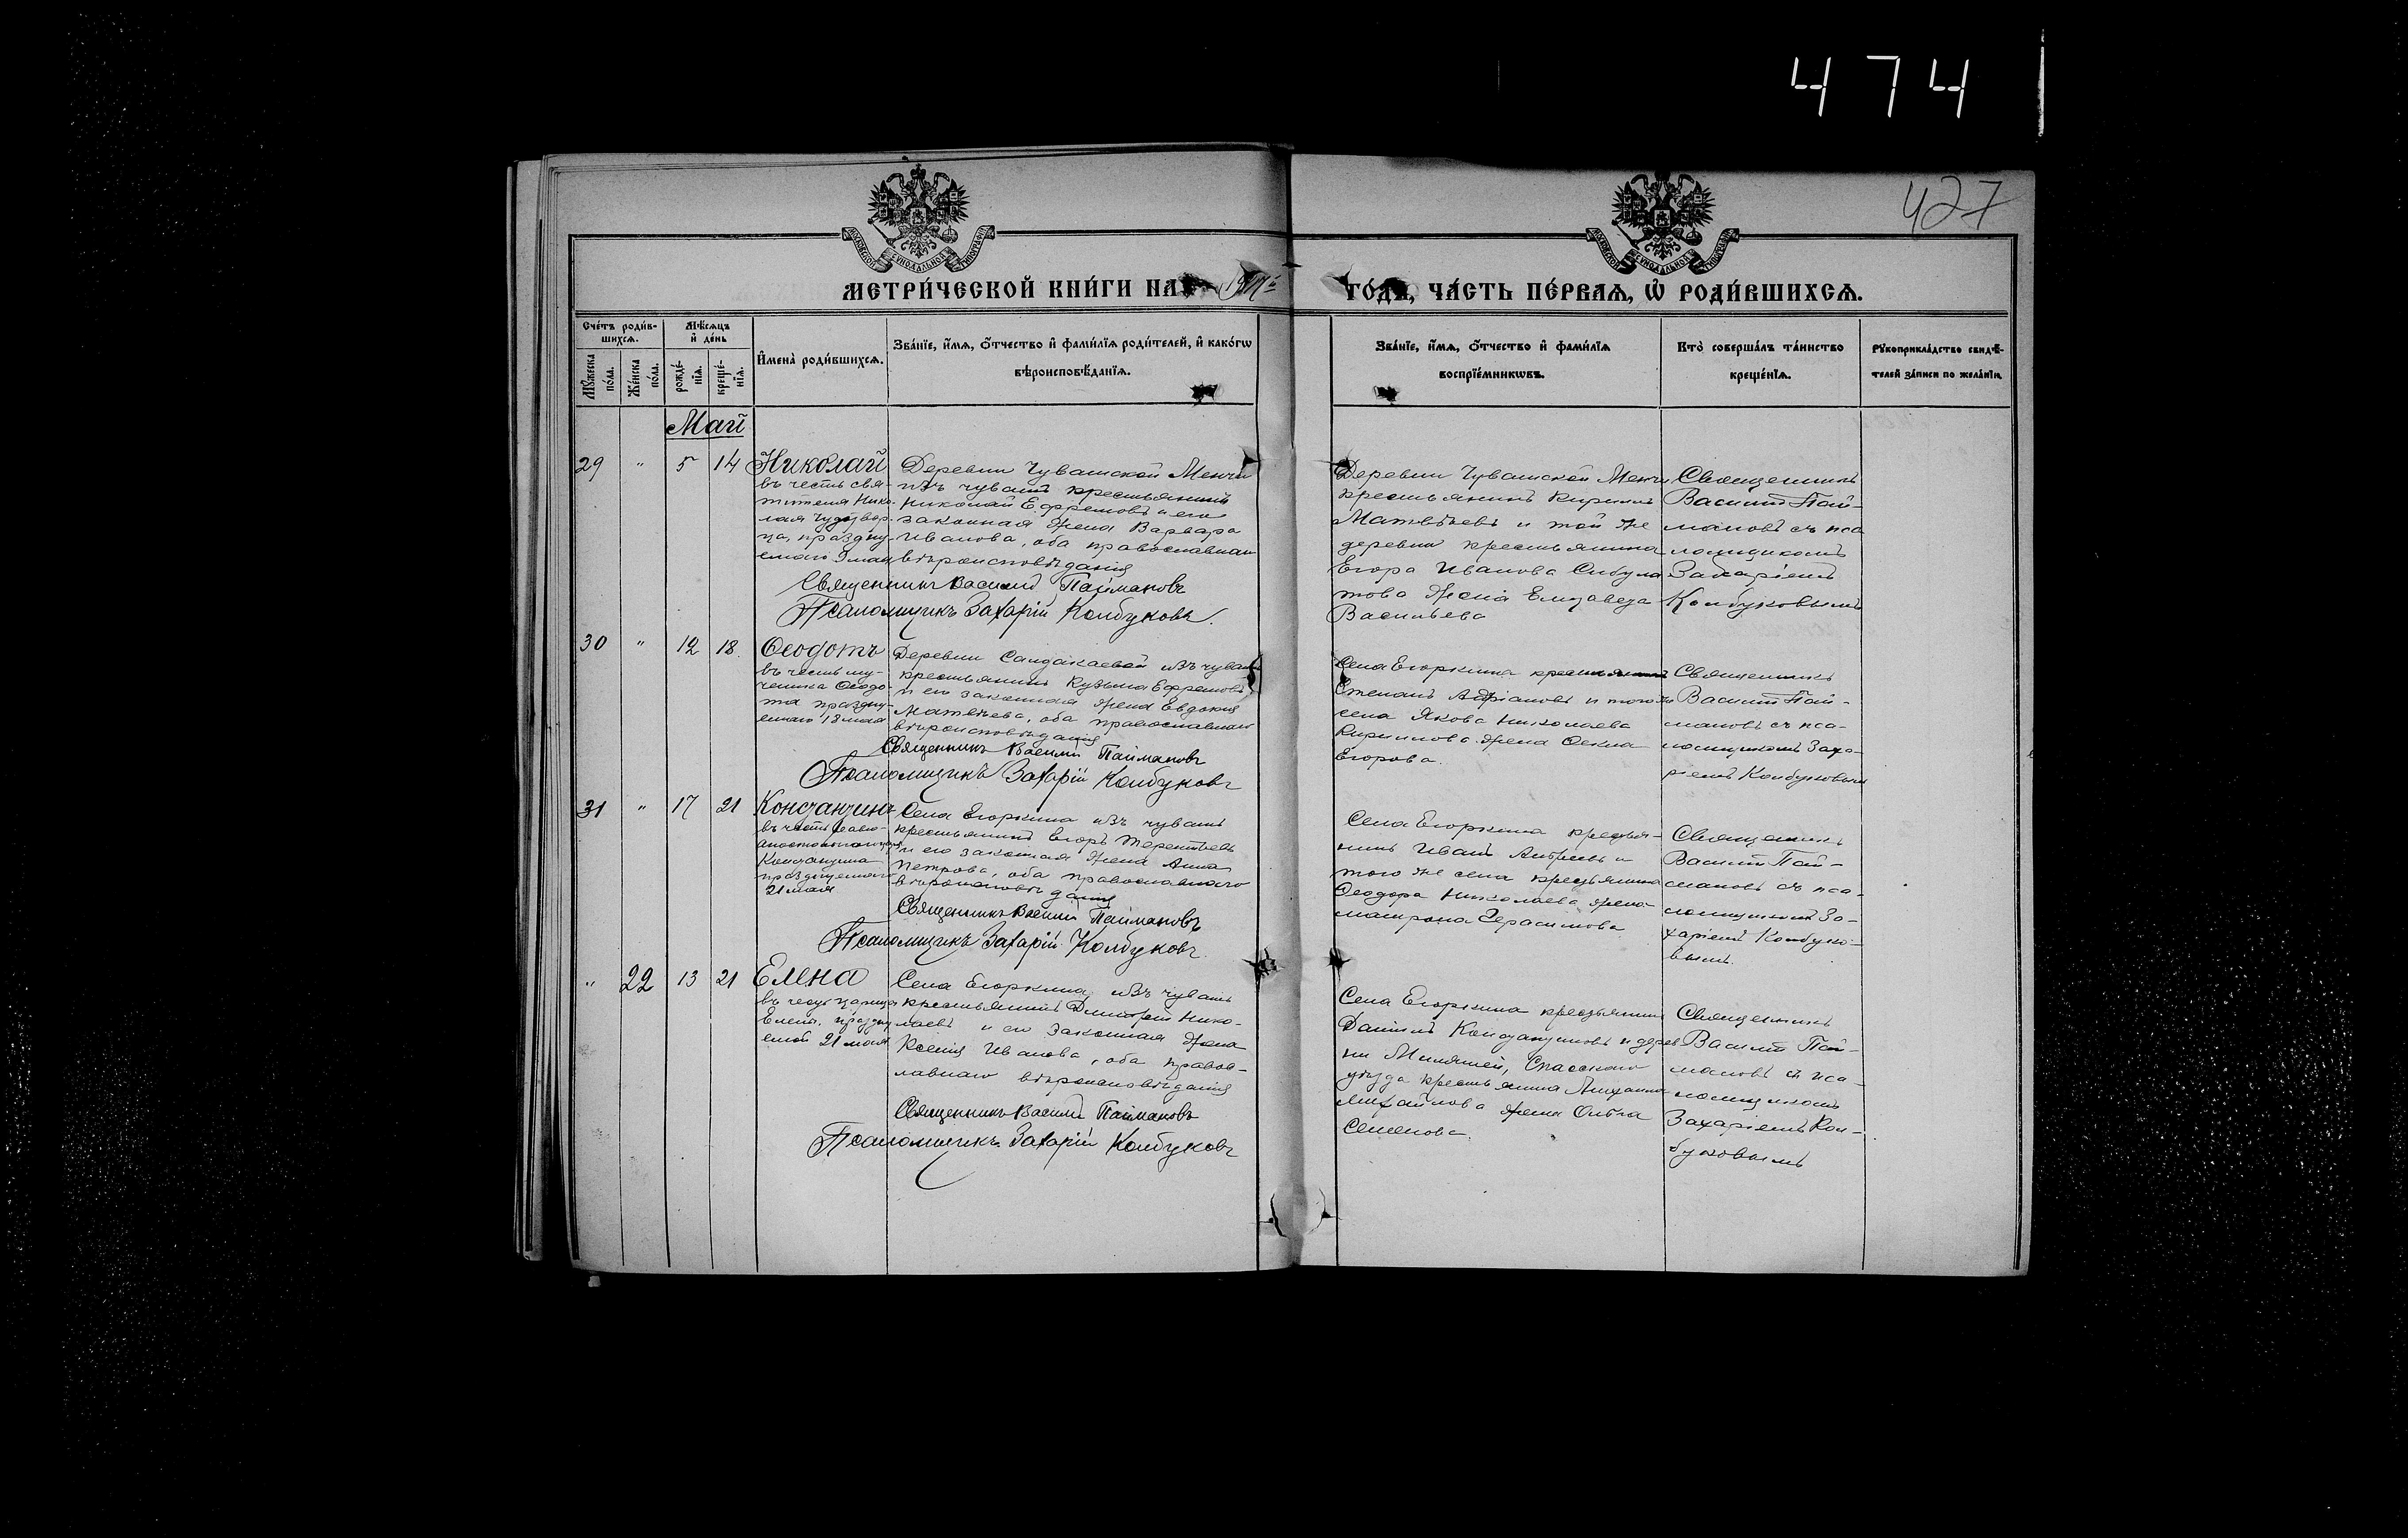 474
427
МОСКОВСКОЙ СѴНОДАЛЬНОЙ ТИПОГРАФІИ
МОСКОВСКОЙ СѴНОДАЛЬНОЙ ТИПОГРАФІИ
МЕТРИ́ЧЕСКОЙ КНИ́ГИ НА 1917й
ГО́ДЪ, ЧА́СТЬ ПЕ́РВАѦ, Ѡ҆ РОДИ́ВШИХСѦ.
Сче́тъ роди́в-
шихсѧ.
Мꙋ́жеска
по́ла.
Же́нска
по́ла.
Мѣ́сѧцъ
и҆ де́нь
рожде́-
нїѧ.
креще́-
нїѧ.
И҆мена̀ роди́вшихсѧ.
Зва́нїе, и҆́мѧ, ѻ҆́тчество и҆ фами́лїѧ роди́телей, и҆ како́гѡ
вѣроисповѣ́данїѧ.
Зва́нїе, и҆́мѧ, ѻ҆́тчество и҆ фами́лїѧ
воспрїе́мникѡвъ.
Кто̀ соверша́лъ та́инство
креще́нїѧ.
Рꙋкоприкла́дство свидѣ́-
телей за́писи по жела́нїю.
Май
29 " 5 14
Николай
въ честь свя-
тителя Нико-
лая Чудотвор-
ца, праздну-
емаго 9 мая
Деревни Чувашской Менчи
изъ чувашъ крестьянинъ
Николай Ефремовъ и его
законная жена Варвара
Иванова, оба православнаго
вѣроисповѣданія
Священникъ Василій Паймановъ
Псаломщикъ Захарій Колбуковъ.
Деревни Чувашской Менчи
крестьянинъ Кириллъ
Матвѣевъ и той же
деревни крестьянина
Егора Иванова Сибула
това жена Елизавета
Васильева
Священникъ
Василій Пай-
мановъ съ пса
ломщикомъ
Захаріемъ
Колбуковымъ
30 " 12 18
Ѳеодотъ
въ честь му-
ченика Ѳеодо-
та праздну-
емаго 18 мая
Деревни Салдакаевой изъ чувашъ
крестьянинъ Кузьма Ефремовъ
и его законная жена Евдокія
Матвѣева, оба православнаго
вѣроисповѣданія
Священникъ Василій Паймановъ
Псаломщикъ Захарій Колбуковъ
Села Егоркина крестьянинъ
Степанъ Адріановъ и того же
села Якова Николаева
Кириллова жена Ѳекла
Егорова.
Священникъ
Василій Пай-
мановъ съ пса-
ломщикомъ Заха-
ріемъ Колбуковымъ
31 " 17 21
Константинъ
въ честь равно-
апостольнаго царя
Константина
празднуемаго
21 мая
Села Егоркина изъ чувашъ
крестьянинъ Егоръ Терентьевъ
и его законная жена Анна
Петрова, оба православнаго
вѣроисповѣданія
Священникъ Василій Паймановъ
Псаломщикъ Захарій Колбуковъ.
Села Егоркина крестья-
нинъ Иванъ Андреевъ и
того же села крестьянина
Ѳеодора Николаева жена
Матрона Герасимова
Священникъ
Василій Пай-
мановъ съ пса-
ломщикомъ За-
харіемъ Колбуко-
вымъ.
" 22 13 21
Елена
въ честь царицы
Елены, праздну
емой 21 мая
Села Егоркина изъ чувашъ
крестьянинъ Дмитрій Нико-
лаевъ и его законная жена
Ксенія Иванова, оба правос-
лавнаго вѣроисповѣданія
Священникъ Василій Паймановъ
Псаломщикъ Захарій Колбуковъ
Села Егоркина крестьянинъ
Даніилъ Константиновъ и дерев
ни Спасскаго
уѣзда крестьянина
Михайлова жена Ольга
Семенова.
Священникъ
Василій Пай-
мановъ съ пса-
ломщикомъ
Захаріемъ Кол-
буковымъ